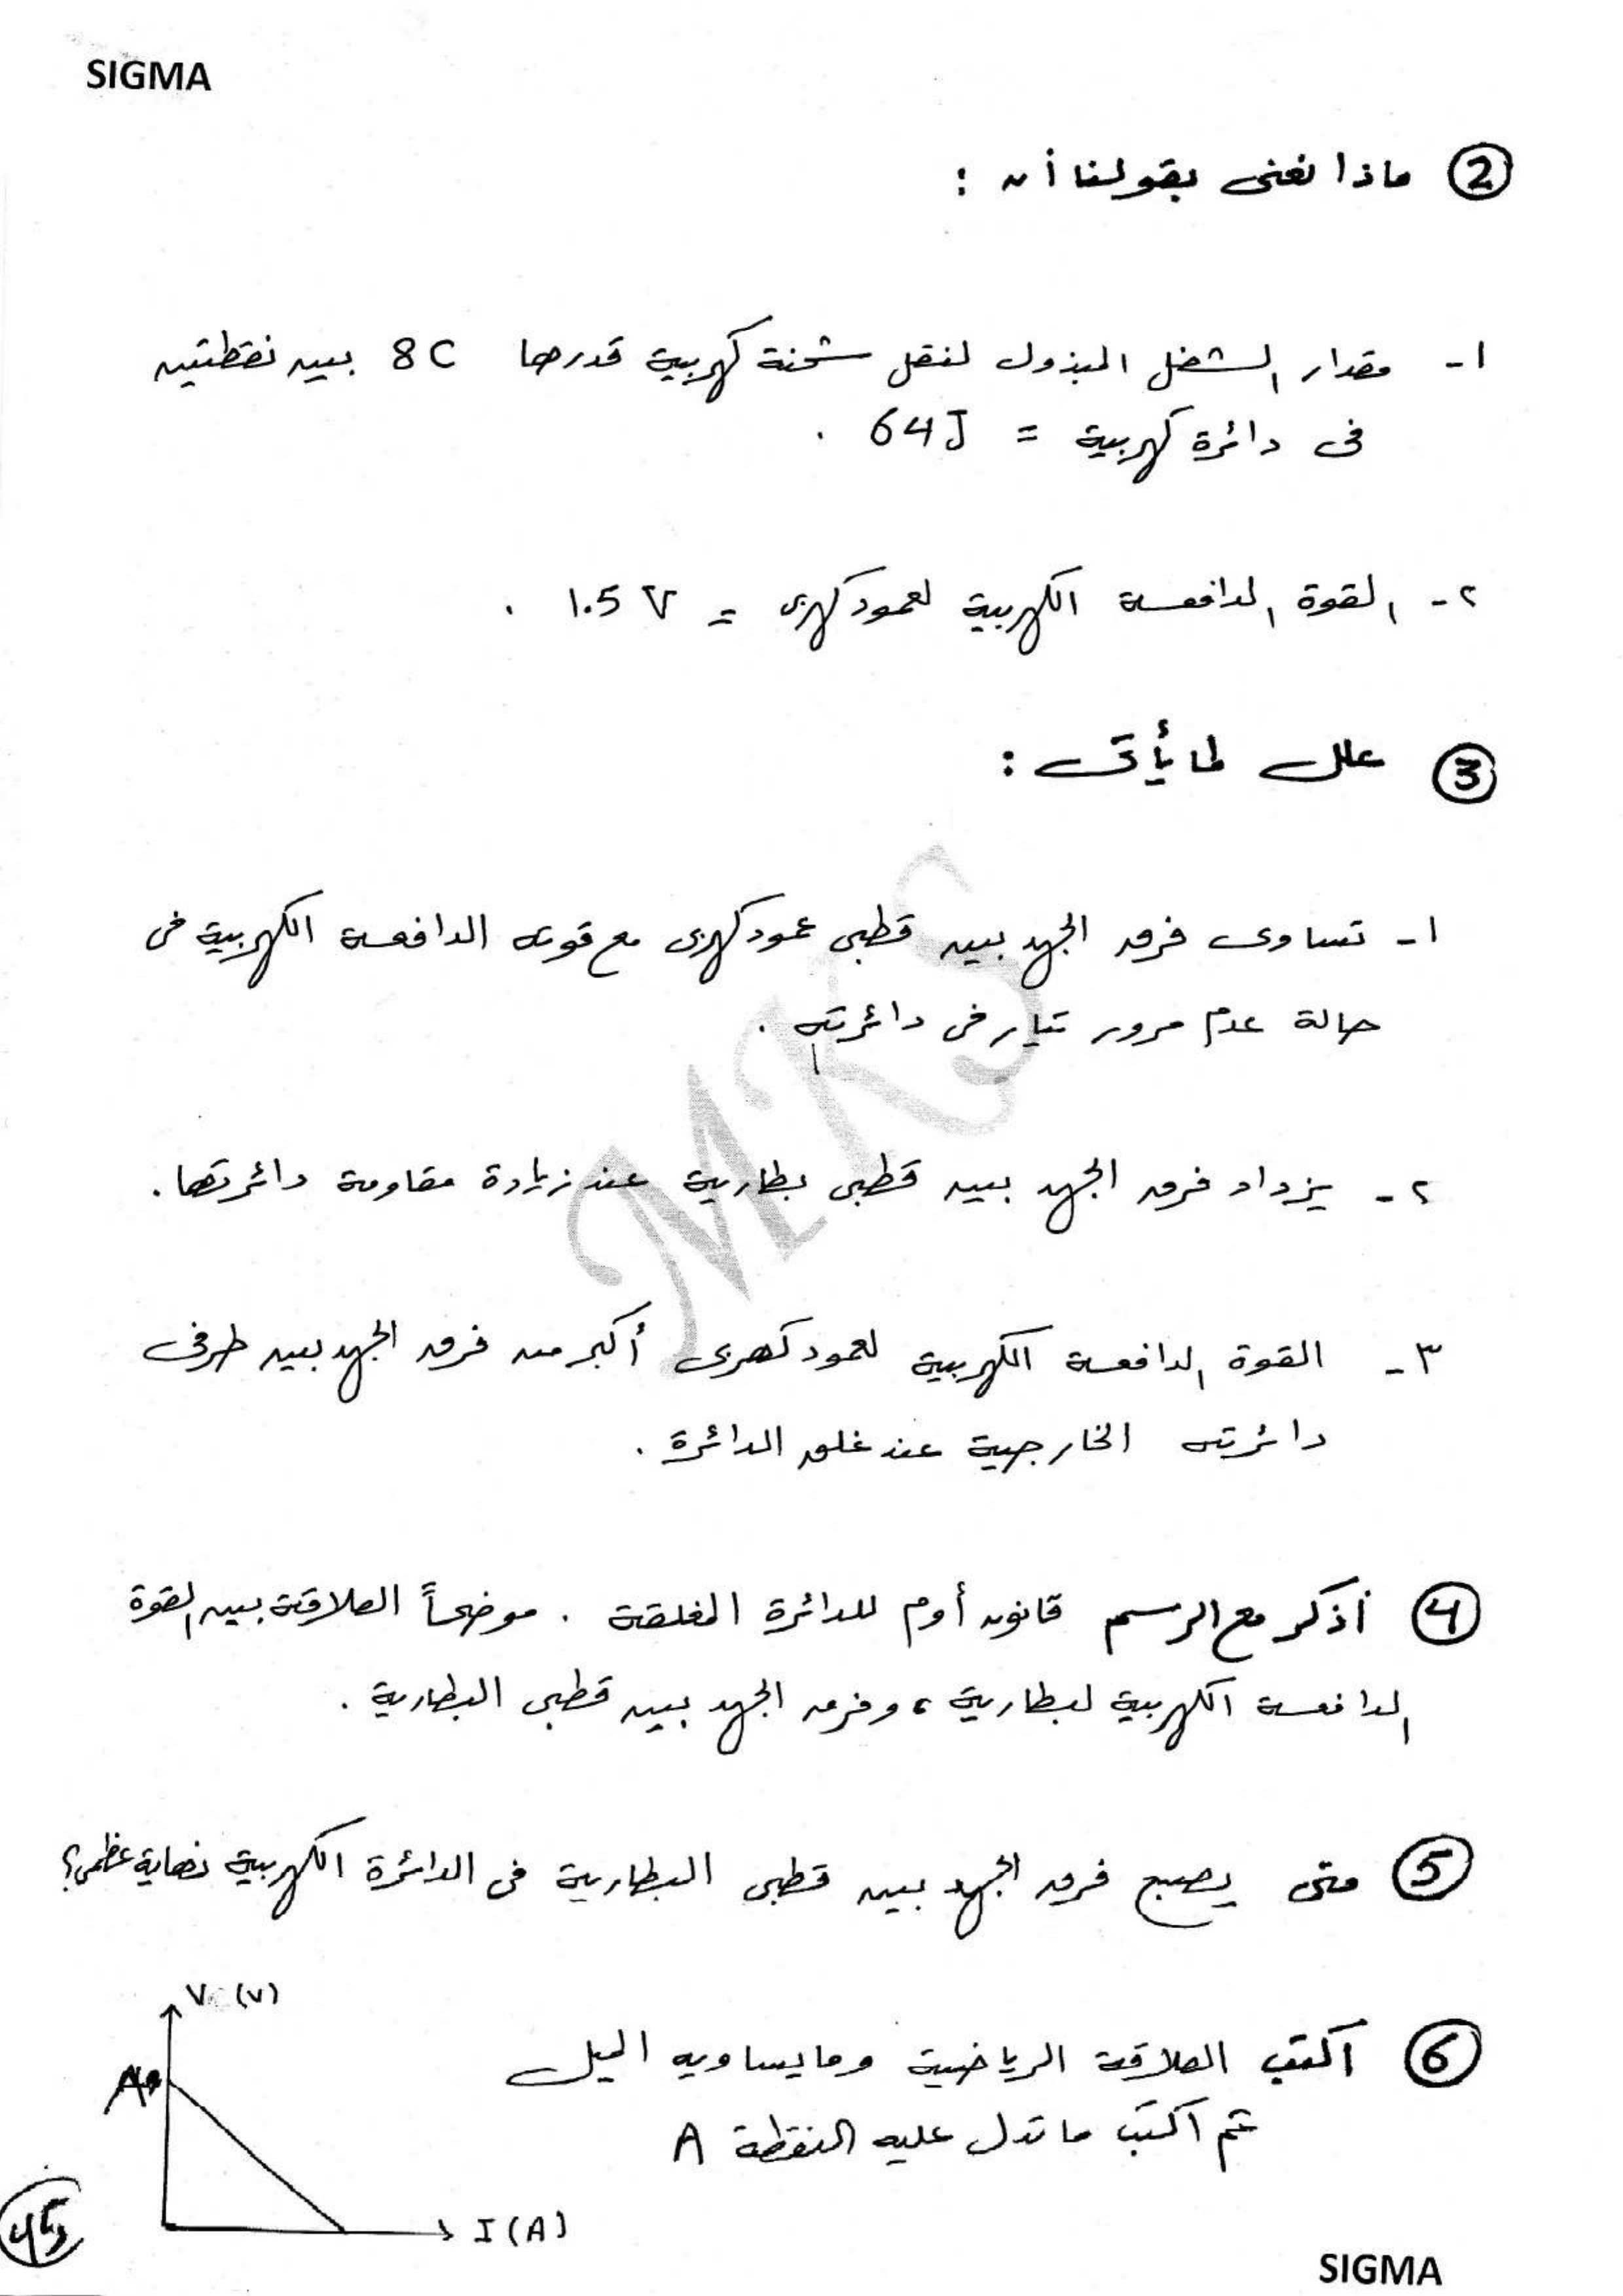 SIGMA
② ماذا نعنى بقولنا أن :
١- مقدار الشغل المبذول لنقل شحنة كهربية قدرها 8C بين نقطتين
فى دائرة كهربية = 64J .
٢- القوة الدافعة الكهربية لعمود كهربى = 1.5 V .
③ علل لما يأتى :
١- تساوى فرق الجهد بين قطبى عمود كهربى مع قوته الدافعة الكهربية فى
حالة عدم مرور تيار فى دائرته .
٢- يزداد فرق الجهد بين قطبى بطارية عند زيادة مقاومة دائرتها .
٣- القوة الدافعة الكهربية لعمود كهربى أكبر من فرق الجهد بين طرفى
دائرته الخارجية عند غلق الدائرة .
MKS
④ أذكر مع الرسم قانون أوم للدائرة المغلقة . موضحاً العلاقة بين القوة
الدافعة الكهربية لبطارية ، وفرق الجهد بين قطبى البطارية .
⑤ متى يصبح فرق الجهد بين قطبى البطارية فى الدائرة الكهربية نهاية عظمى؟
⑥ اكتب العلاقة الرياضية وما يساويه الميل
ثم اكتب ما تدل عليه النقطة A
V (V)
A
I (A)
SIGMA